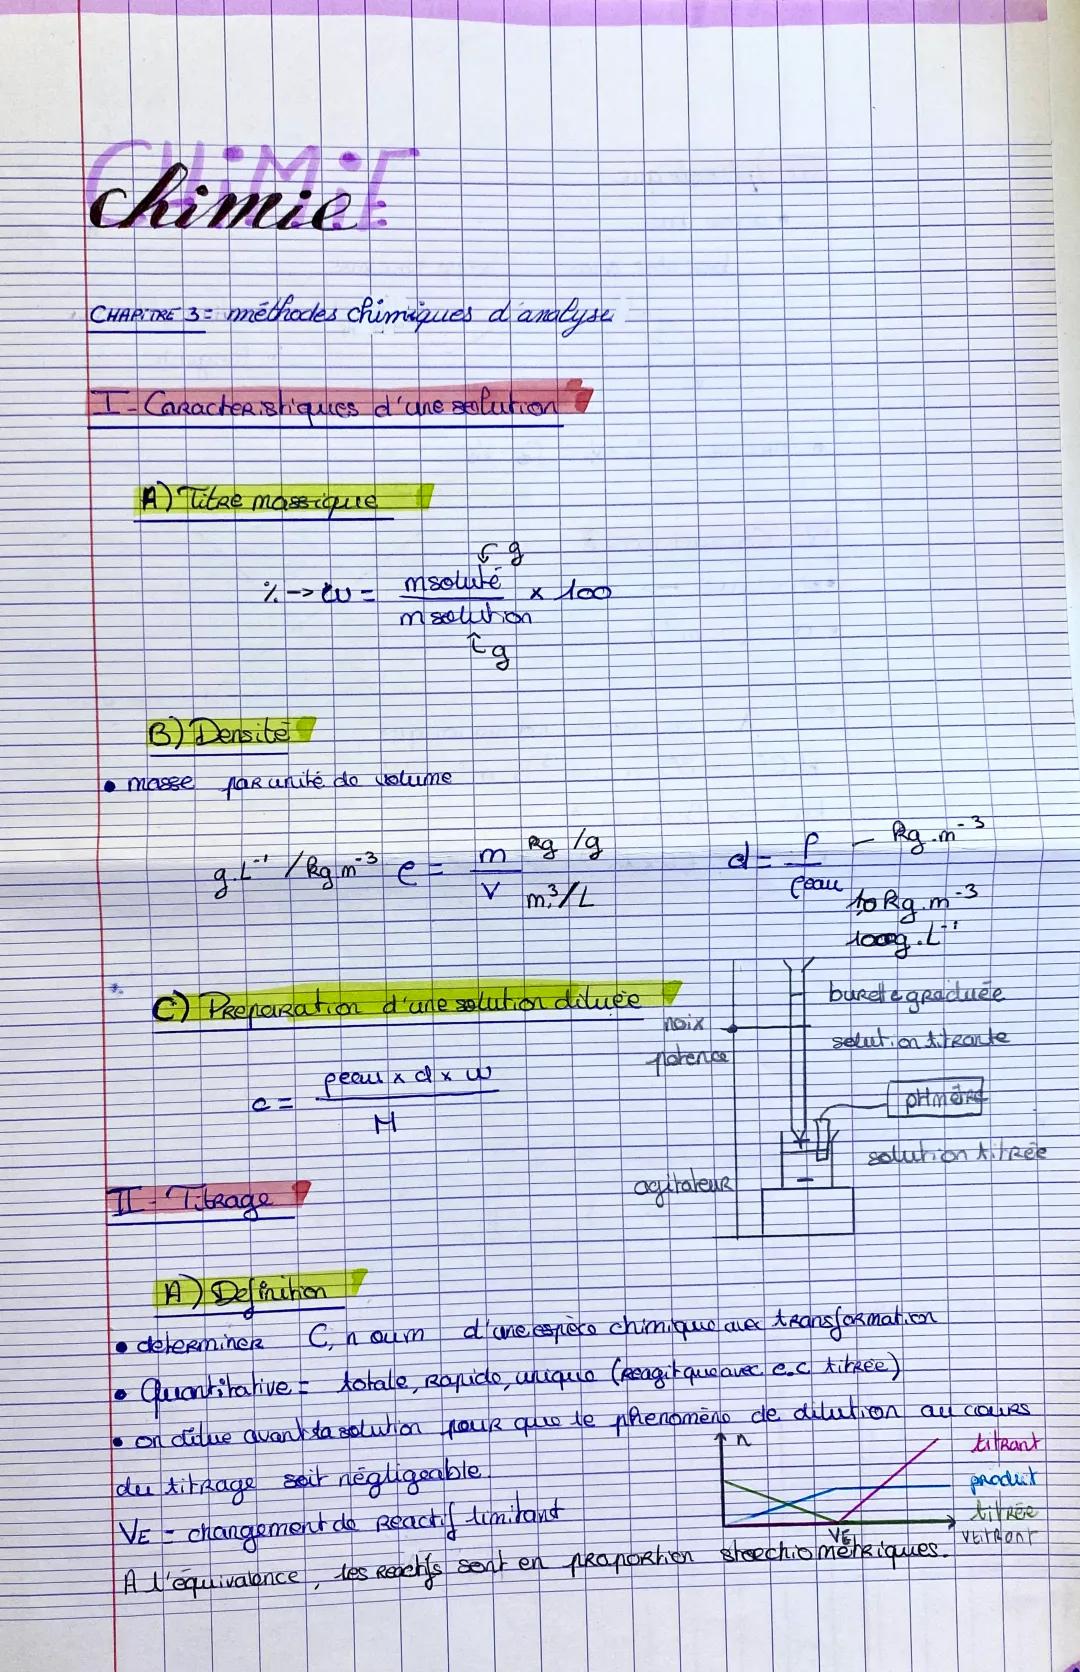 CHiMiE
chimie
CHAPITRE 3 = méthodes chimiques d'analyse
I - Caracteristiques d'une solution
A) Titre massique
g
% -> w = msoluté / msolution x 100
g
B) Densité
• masse par unité de volume
g.L⁻¹ / kg.m⁻³ ρ = m / V kg /g m³/L
d = ρ / ρeau kg.m⁻³
kg.m⁻³
1000g.L⁻¹
C) Preparation d'une solution diluée
c = ρeau x d x w / M
noix
potence
agitateur
burette graduée
solution titrante
pHmètre
solution titrée
II - Titrage
A) Definition
• determiner C, n oum d'une espèce chimique avec transformation
• Quantitative = totale, rapide, unique (reagit que avec e.c titrée)
• on dilue avant la solution pour que le phenomène de dilution au cours
du titrage soit négligeable.
VE = changement de reactif limitant
A l'équivalence, les reactifs sont en proportion stoechiométriques.
n
titrant
produit
titrée
VE
Vtitrant